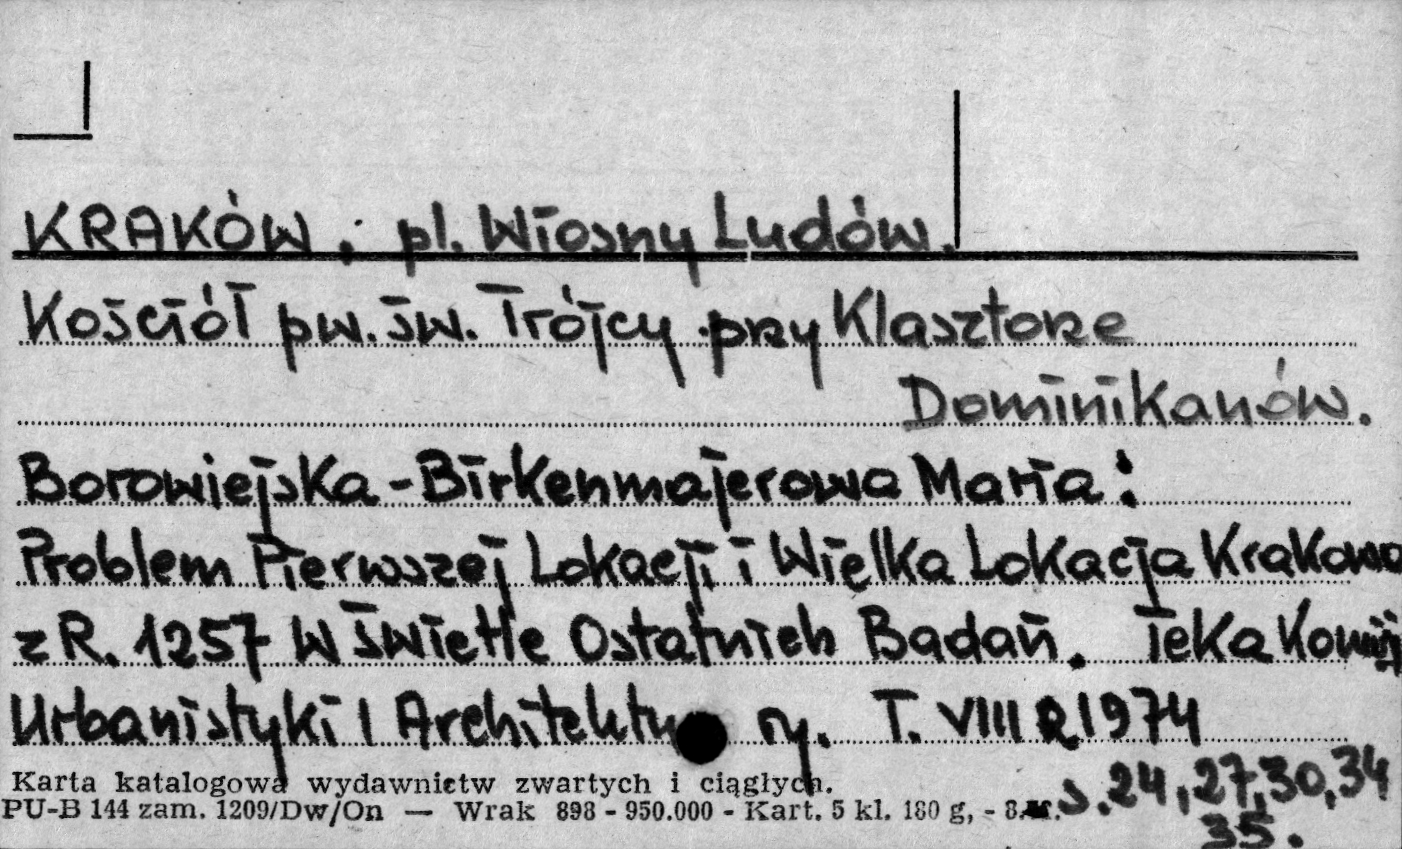 KRAKÓW; pl. Wiosny Ludów.
Kościół pw. św. Trójcy przy Klasztorze
Dominikanów.
Borowiejska-Birkenmajerowa Maria:
Problem Pierwszej Lokacji i Wielka Lokacja Krakowa
z R. 1257 w Świetle Ostatnich Badań. Teka Komisji
Urbanistyki I Architektury. T. VIII R 1974
s. 24, 27, 30, 34
35.
Karta katalogowa wydawnictw zwartych i ciągłych.
PU-B 144 zam. 1209/Dw/On — Wrak 898 - 950.000 - Kart. 5 kl. 180 g, - 8.